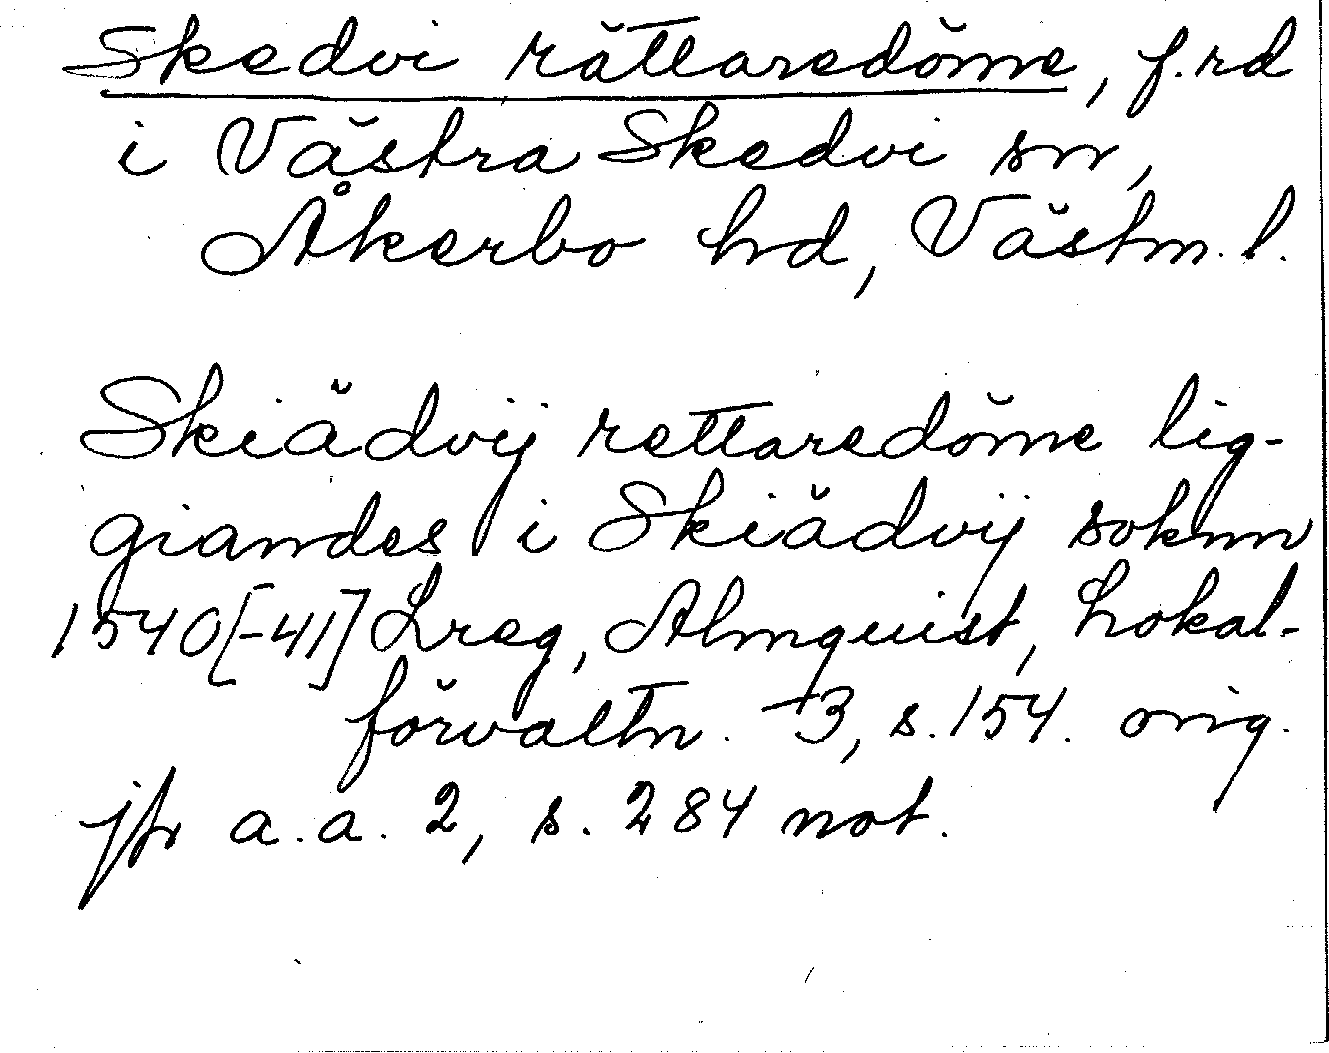 Skedvi rättaredöme, f.rd
i Västra Skedvi sn,
Åkerbo hd, Västm. l.
Skiädvij rettaredöme lig-
giandes i Skiädvij soknn
1540[-41] Lreg, Almquist, Lokal-
förvaltn. 3, s. 154. orig.
jfr a.a. 2, s. 284 not.